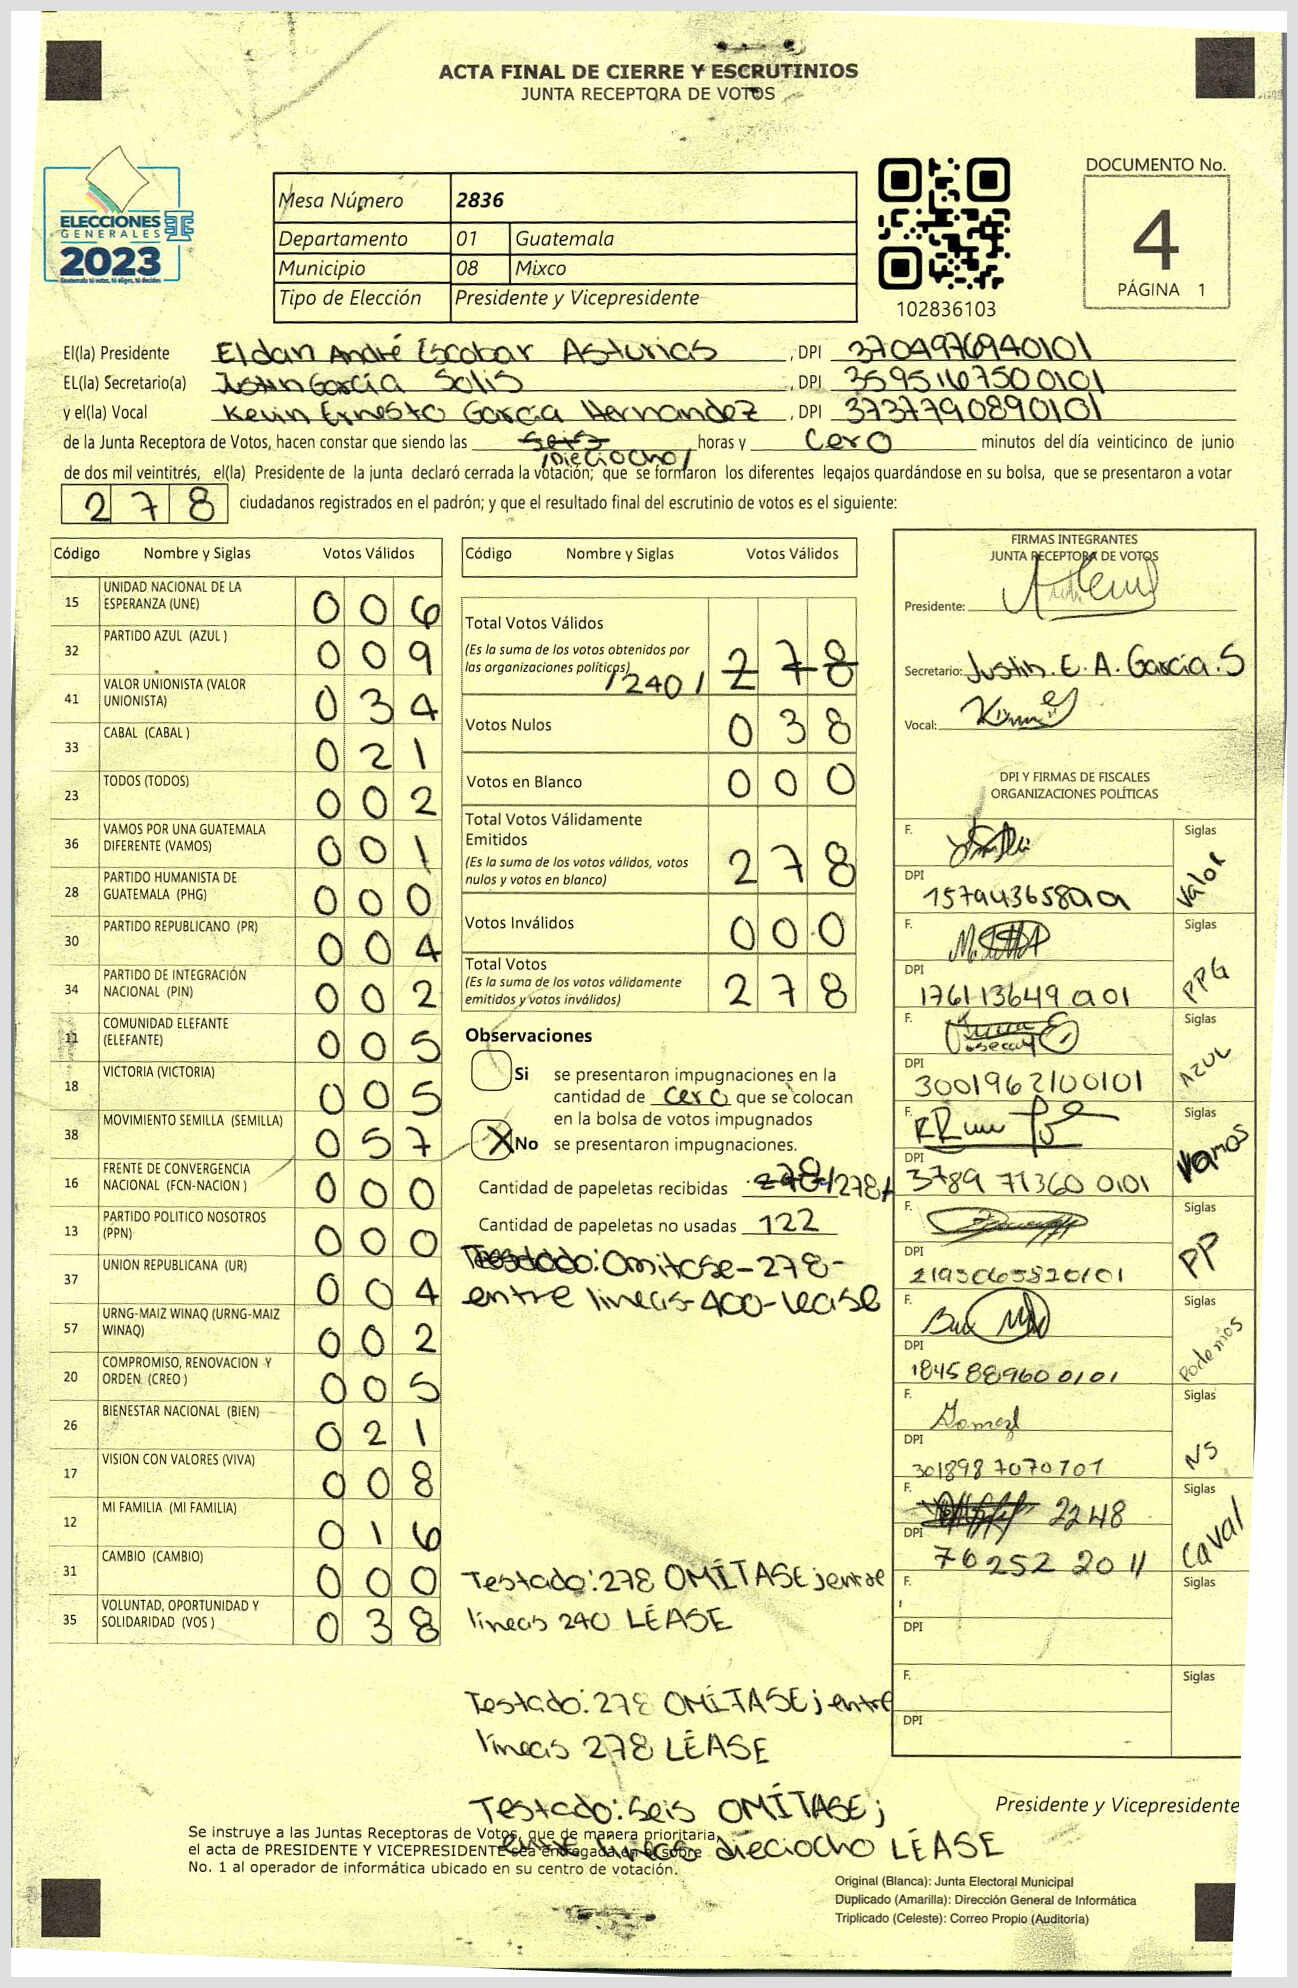 ACTA FINAL DE CIERRE Y ESCRUTINIOS
JUNTA RECEPTORA DE VOTOS
ELECCIONES
GENERALES
2023
Mesa Número 2836
Departamento 01 Guatemala
Municipio 08 Mixco
Tipo de Elección Presidente y Vicepresidente
102836103
DOCUMENTO No.
4
PÁGINA 1
El(la) Presidente Eldan André Escobar Asturias, DPI 3704976940101
EL(la) Secretario(a) Justin García Solis, DPI 3595116750101
y el(la) Vocal Kevin Ernesto García Hernandez, DPI 3737790890101
de la Junta Receptora de Votos, hacen constar que siendo las seis horas y cero minutos del día veinticinco de junio
/Dieciocho/
de dos mil veintitrés, el(la) Presidente de la junta declaró cerrada la votación; que se formaron los diferentes legajos quardándose en su bolsa, que se presentaron a votar
278 ciudadanos registrados en el padrón; y que el resultado final del escrutinio de votos es el siguiente:
Código Nombre y Siglas Votos Válidos
15 UNIDAD NACIONAL DE LA ESPERANZA (UNE) 006
32 PARTIDO AZUL (AZUL ) 009
41 VALOR UNIONISTA (VALOR UNIONISTA) 034
33 CABAL (CABAL ) 021
23 TODOS (TODOS) 002
36 VAMOS POR UNA GUATEMALA DIFERENTE (VAMOS) 001
28 PARTIDO HUMANISTA DE GUATEMALA (PHG) 000
30 PARTIDO REPUBLICANO (PR) 004
34 PARTIDO DE INTEGRACIÓN NACIONAL (PIN) 002
11 COMUNIDAD ELEFANTE (ELEFANTE) 005
18 VICTORIA (VICTORIA) 005
38 MOVIMIENTO SEMILLA (SEMILLA) 057
16 FRENTE DE CONVERGENCIA NACIONAL (FCN-NACION ) 000
13 PARTIDO POLITICO NOSOTROS (PPN) 000
37 UNION REPUBLICANA (UR) 004
57 URNG-MAIZ WINAQ (URNG-MAIZ WINAQ) 002
20 COMPROMISO, RENOVACION Y ORDEN (CREO ) 005
26 BIENESTAR NACIONAL (BIEN) 021
17 VISION CON VALORES (VIVA) 008
12 MI FAMILIA (MI FAMILIA) 016
31 CAMBIO (CAMBIO) 000
35 VOLUNTAD, OPORTUNIDAD Y SOLIDARIDAD (VOS ) 038
Código Nombre y Siglas Votos Válidos
Total Votos Válidos
(Es la suma de los votos obtenidos por
las organizaciones políticas) /240/ 278
Votos Nulos 038
Votos en Blanco 000
Total Votos Válidamente
Emitidos
(Es la suma de los votos válidos, votos
nulos y votos en blanco) 278
Votos Inválidos 000
Total Votos
(Es la suma de los votos válidamente
emitidos y votos inválidos) 278
Observaciones
Si se presentaron impugnaciones en la
cantidad de cero que se colocan
en la bolsa de votos impugnados
X No se presentaron impugnaciones.
Cantidad de papeletas recibidas 278
Cantidad de papeletas no usadas 122
Testado: Omitase-278-
entre lineas-400-lease
Testado: 278 OMÍTASE; entre
lineas 240 LÉASE
Testado: 278 OMÍTASE; entre
lineas 278 LÉASE
Testado: Seis OMÍTASE;
entre lineas dieciocho LÉASE
FIRMAS INTEGRANTES
JUNTA RECEPTORA DE VOTOS
Presidente:
Secretario: Justin. E. A. García. S
Vocal:
DPI Y FIRMAS DE FISCALES
ORGANIZACIONES POLÍTICAS
F. Siglas Valor
DPI
F. Siglas PPG
DPI
F. Siglas AZUL
DPI 3001962100101
F. Siglas Vamos
DPI 3789 71360 0101
F. Siglas PP
DPI 2193065820101
F. Siglas Podemos
DPI 1845889600101
F. Siglas NS
DPI
F. 2248 Siglas Caval
DPI 76252 2011
F. Siglas
DPI
F. Siglas
DPI
Presidente y Vicepresidente
Se instruye a las Juntas Receptoras de Votos, que de manera prioritaria,
el acta de PRESIDENTE Y VICEPRESIDENTE sea entregada en el sobre
No. 1 al operador de informática ubicado en su centro de votación.
Original (Blanca): Junta Electoral Municipal
Duplicado (Amarilla): Dirección General de Informática
Triplicado (Celeste): Correo Propio (Auditoría)